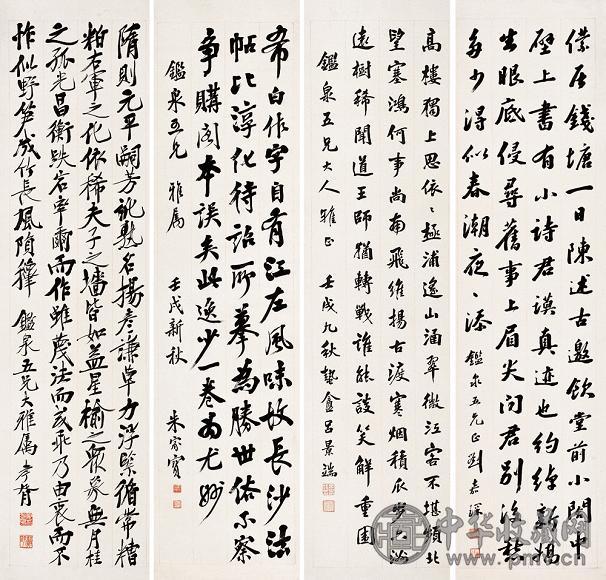 僕居錢塘一日陳述古邀飲堂前小閣中
壁上書有小詩君謨真迹也約綽新嬌
生眼底侵尋舊事上眉尖問君別後愁
多少得似春潮夜〻添 鑑泉五兄正 劉嘉琛
高樓獨上思依〻極浦遙山涵翠微江客不堪頻北
望塞鴻何事尚南飛維揚古渡寒烟積瓜步空洲
遠樹稀聞道王師猶轉戰誰能談笑解重圍
鑑泉五兄大人雅正 壬戌九秋蟄盦呂景端
希白作字自有江左風味故長沙法
帖比淳化待詔所摹為勝世俗不察
爭購閣本誤矣此逸少一卷為尤妙
鑑泉五兄 雅屬 壬戌新秋 朱家寶
隋則元平嗣芳 名揚彥謙卓力浮緊循常糟
粕右軍之化依稀夫子之墻皆如益星榆之眾象無月桂
之孤光昌衡跌宕率爾而作雖蔑法而或乖乃由衷而不
怍似野筍成竹長風隕籜 鑑泉五兄大雅屬
中华收藏网